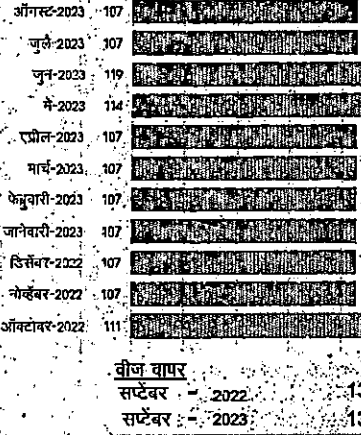 ऑगस्ट-2023 107
जुलै-2023 107
जुन-2023 119
मे-2023 114
एप्रील-2023 107
मार्च-2023 107
फेब्रुवारी-2023 107
जानेवारी-2023 107
डिसेंबर-2022 107
नोव्हेंबर-2022 107
ऑक्टोबर-2022 111
वीज वापर
सप्टेंबर - 2022
सप्टेंबर - 2023